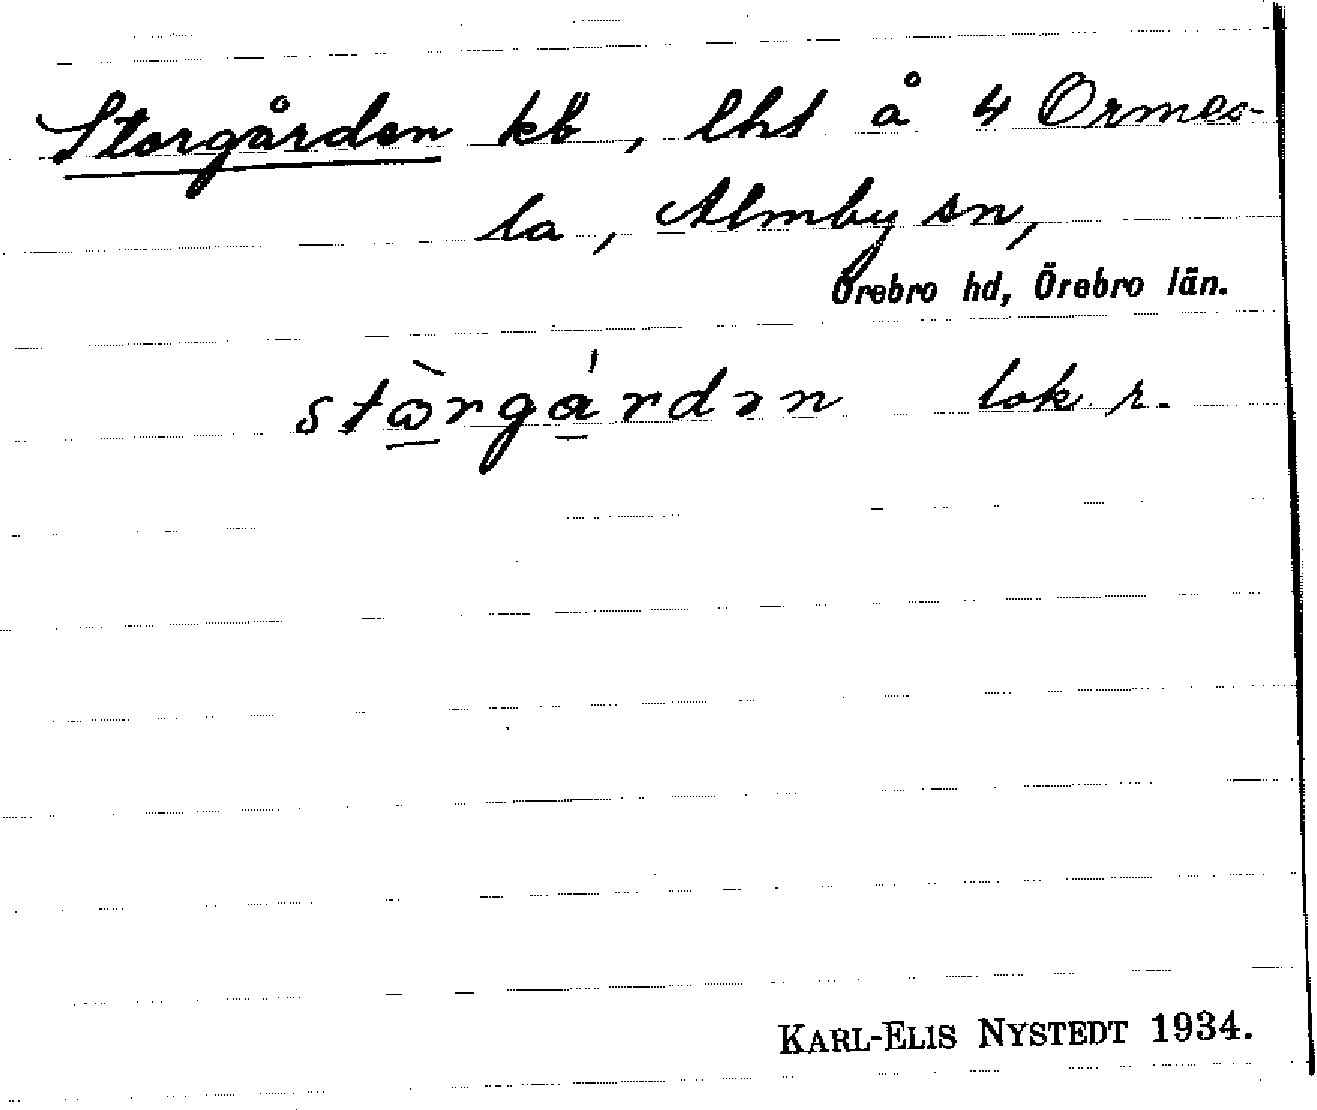 Storgården kb, lht å 4 Ormes-
ta, Almby sn,
Örebro hd, Örebro län.
stɷ̀rgárdən lok r.
KARL-ELIS NYSTEDT 1934.